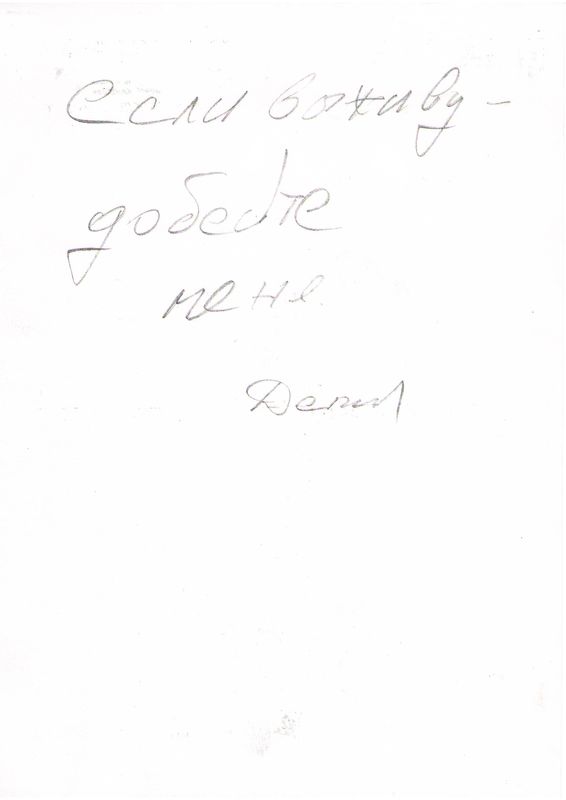 если выживу -
добейте
мене